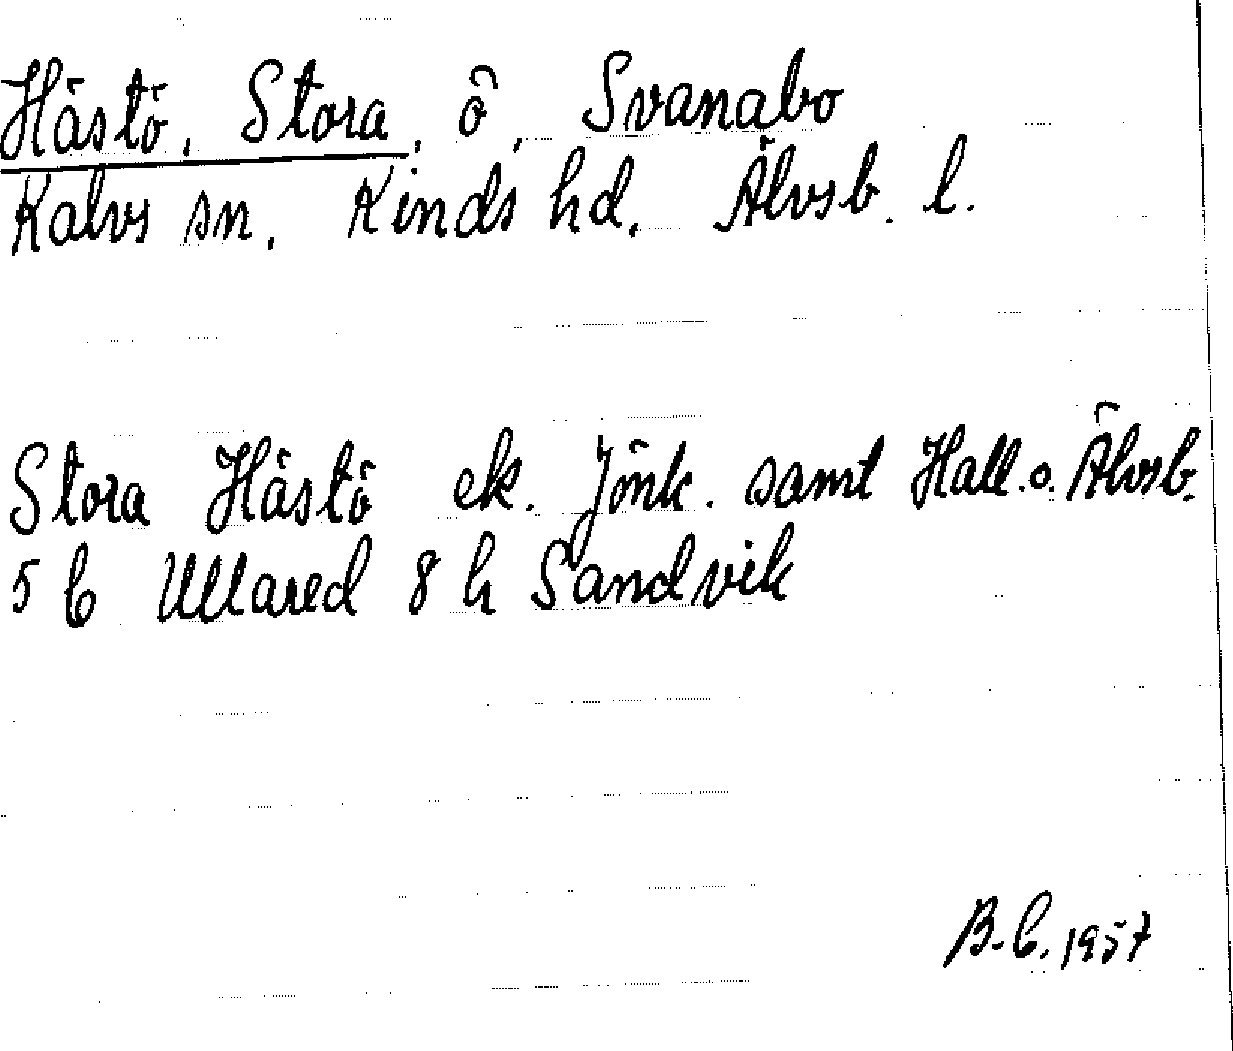 Hästö, Stora, ö, Svanabo
Kalvs sn. Kinds hd. Älvsb. l.
Stora Hästö ek. Jönk. samt Hall. o. Älvsb.
5 C Ullared 8 h Sandvik
B. C. 1957